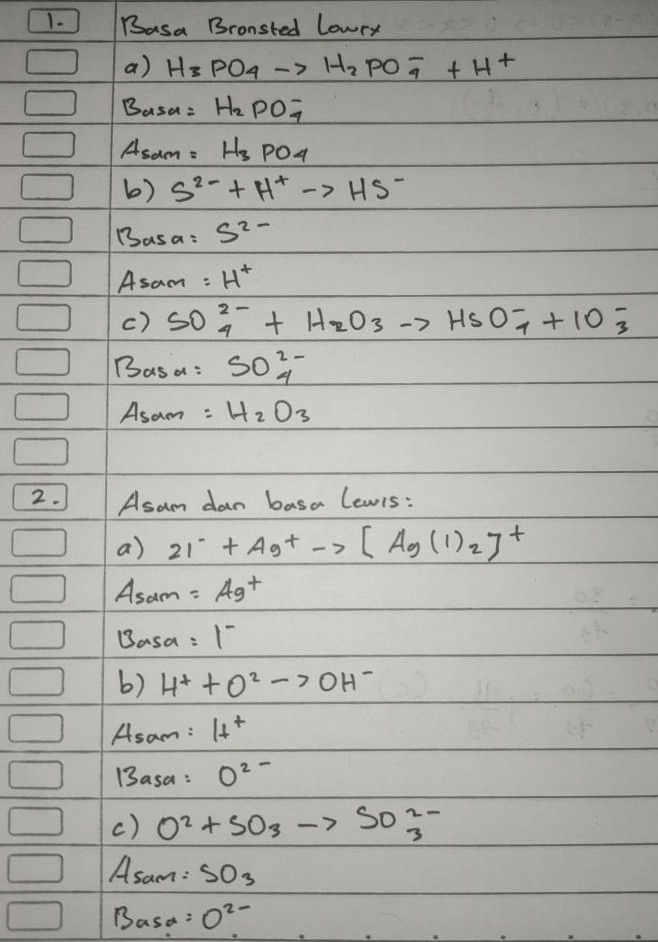 1. Basa Bronsted Lowry
a) H₃PO₄ -> H₂PO₄⁻ + H⁺
Basa: H₂PO₄⁻
Asam: H₃PO₄
b) S²⁻ + H⁺ -> HS⁻
Basa: S²⁻
Asam: H⁺
c) SO₄²⁻ + H₂O₃ -> HSO₄⁻ + IO₃⁻
Basa: SO₄²⁻
Asam: H₂O₃
2. Asam dan basa Lewis:
a) 2I⁻ + Ag⁺ -> [Ag(I)₂]⁺
Asam = Ag⁺
Basa: I⁻
b) H⁺ + O² -> OH⁻
Asam: H⁺
Basa: O²⁻
c) O² + SO₃ -> SO₃²⁻
Asam: SO₃
Basa: O²⁻